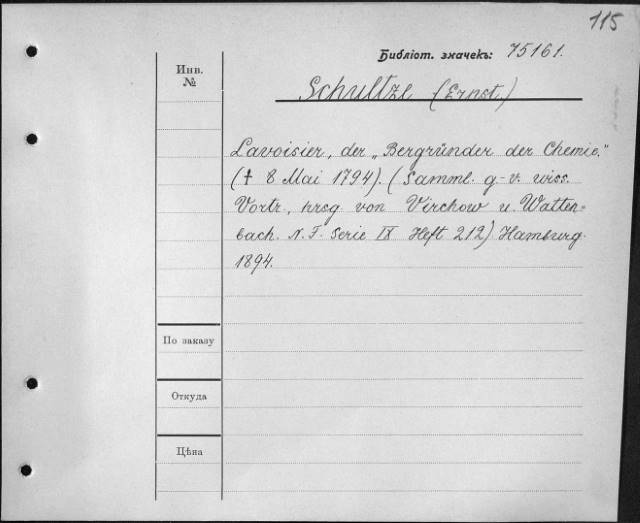 115
Библіот. значекъ: 75161.
Инв. №
Schultze (Ernst)
Lavoisier, der „Bergründer der Chemie."
(† 8 Mai 1794). (Samml. g.-v. wiss.
Vortr., hrsg. von Virchow u. Watten-
bach. N. F. Serie IX Heft 212) Hamburg
1894.
По заказу
Откуда
Цѣна